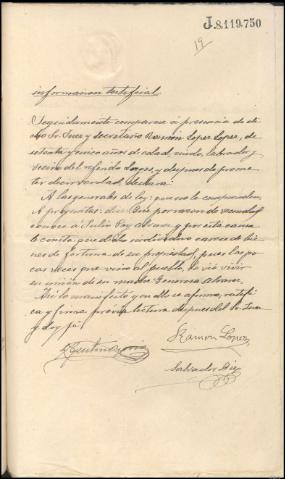 J.8.119.750
19
Informacion testifical
Seguidamente comparece a presencia de di-
cho Sr. Juez y Secretario Ramón Lopez Lopez, de
setenta y cinco años de edad, viudo, labrador y
vecino del referido y despues de prome-
ter decir verdad, declara:
A las generales de ley: que no le comprenden
A preguntas: dice Que por razon de vecindad
conoce a Julio y por esta causa
le consta que dicho individuo carece de bie-
nes de fortuna de su propiedad, pues las po-
cas veces que vino al pueblo, lo vió vivir
en union de su madre
Asi lo manifesto y en ello se afirma, ratifi-
ca y firma previa lectura despues del Sr. Juez
y doy fé
Ramon Lopez
Salvador